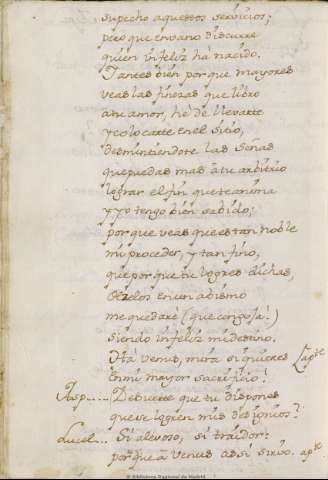 supecho aquestos servicios;
pero que en vano discurre
quien infeliz ha nacido.
Tantes bien porque mayores
veas las finezas que libro
a tu amor, hé de llevarte
y colocarte en el sitio,
desmintiendote las señas
que puedas mas â tu arbitrio
lograr el fin que te anima
y yo tengo bien sabido;
porque veas que es tan noble
mi proceder, y tan fino,
que porque tu logres dichas,
Zelos en un abismo
me quedare (que congoja!)
siendo infeliz mi destino.
Ha Venus, mira si quieres Lapte
en mi mayor sacrificio!
Asp..... De suerte que tu dispones
que se logren mis designios?
Lucel... Si alevoso, si traidor:
porque â Venus assi sirvo. apte
© Biblioteca Regional de Madrid